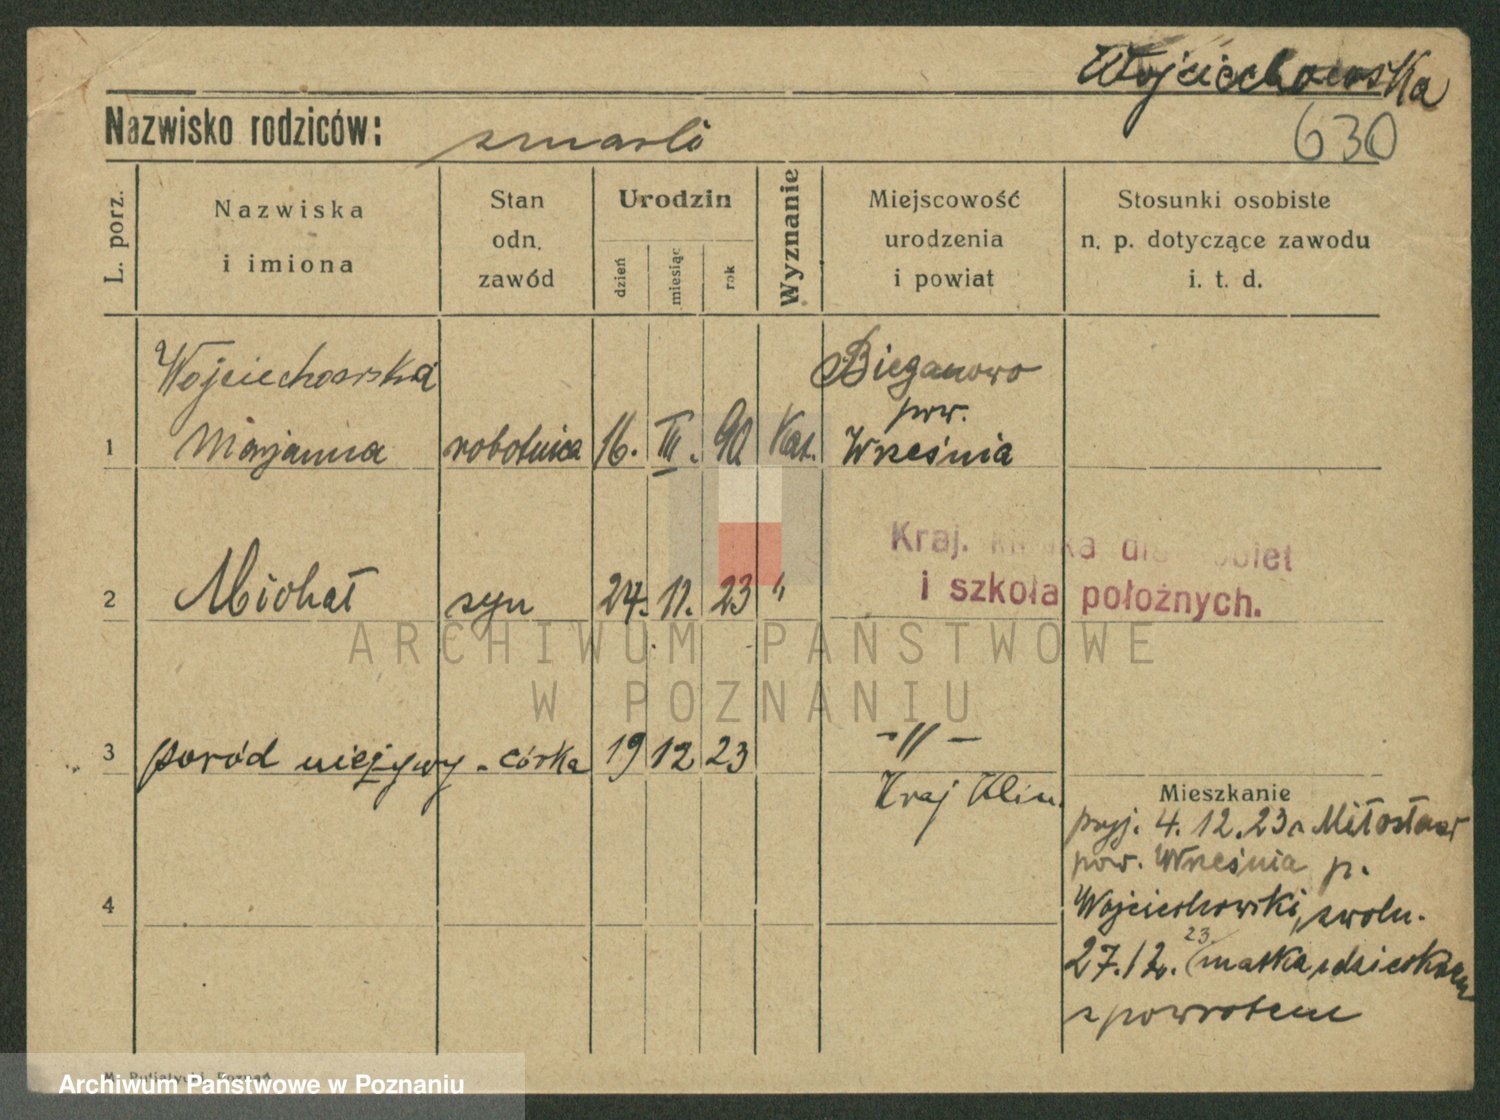 Wojciechowska
Nazwisko rodziców: zmarli
630
L. porz.
Nazwiska
i imiona
Stan
odn.
zawód
Urodzin
dzień
miesiąc
rok
Wyznanie
Miejscowość
urodzenia
i powiat
Stosunki osobiste
n. p. dotyczące zawodu
i. t. d.
Wojciechowska Bieganowo
pow.
1 Marjanna robotnica 16. III. 90 Kat. Września
Kraj. klinika dla kobiet
i szkoła położnych.
2 Michał syn 24. 11. 23 "
ARCHIWUM PAŃSTWOWE
W POZNANIU
3 poród nieżywy - córka 19 12 23 -"-
Kraj Klin.
Mieszkanie
przyj. 4.12.23 Miłosław
pow. Września p.
4
Wojciechowski, zwoln.
27.12. 23 matka z dzieckiem
z powrotem
Archiwum Państwowe w Poznaniu